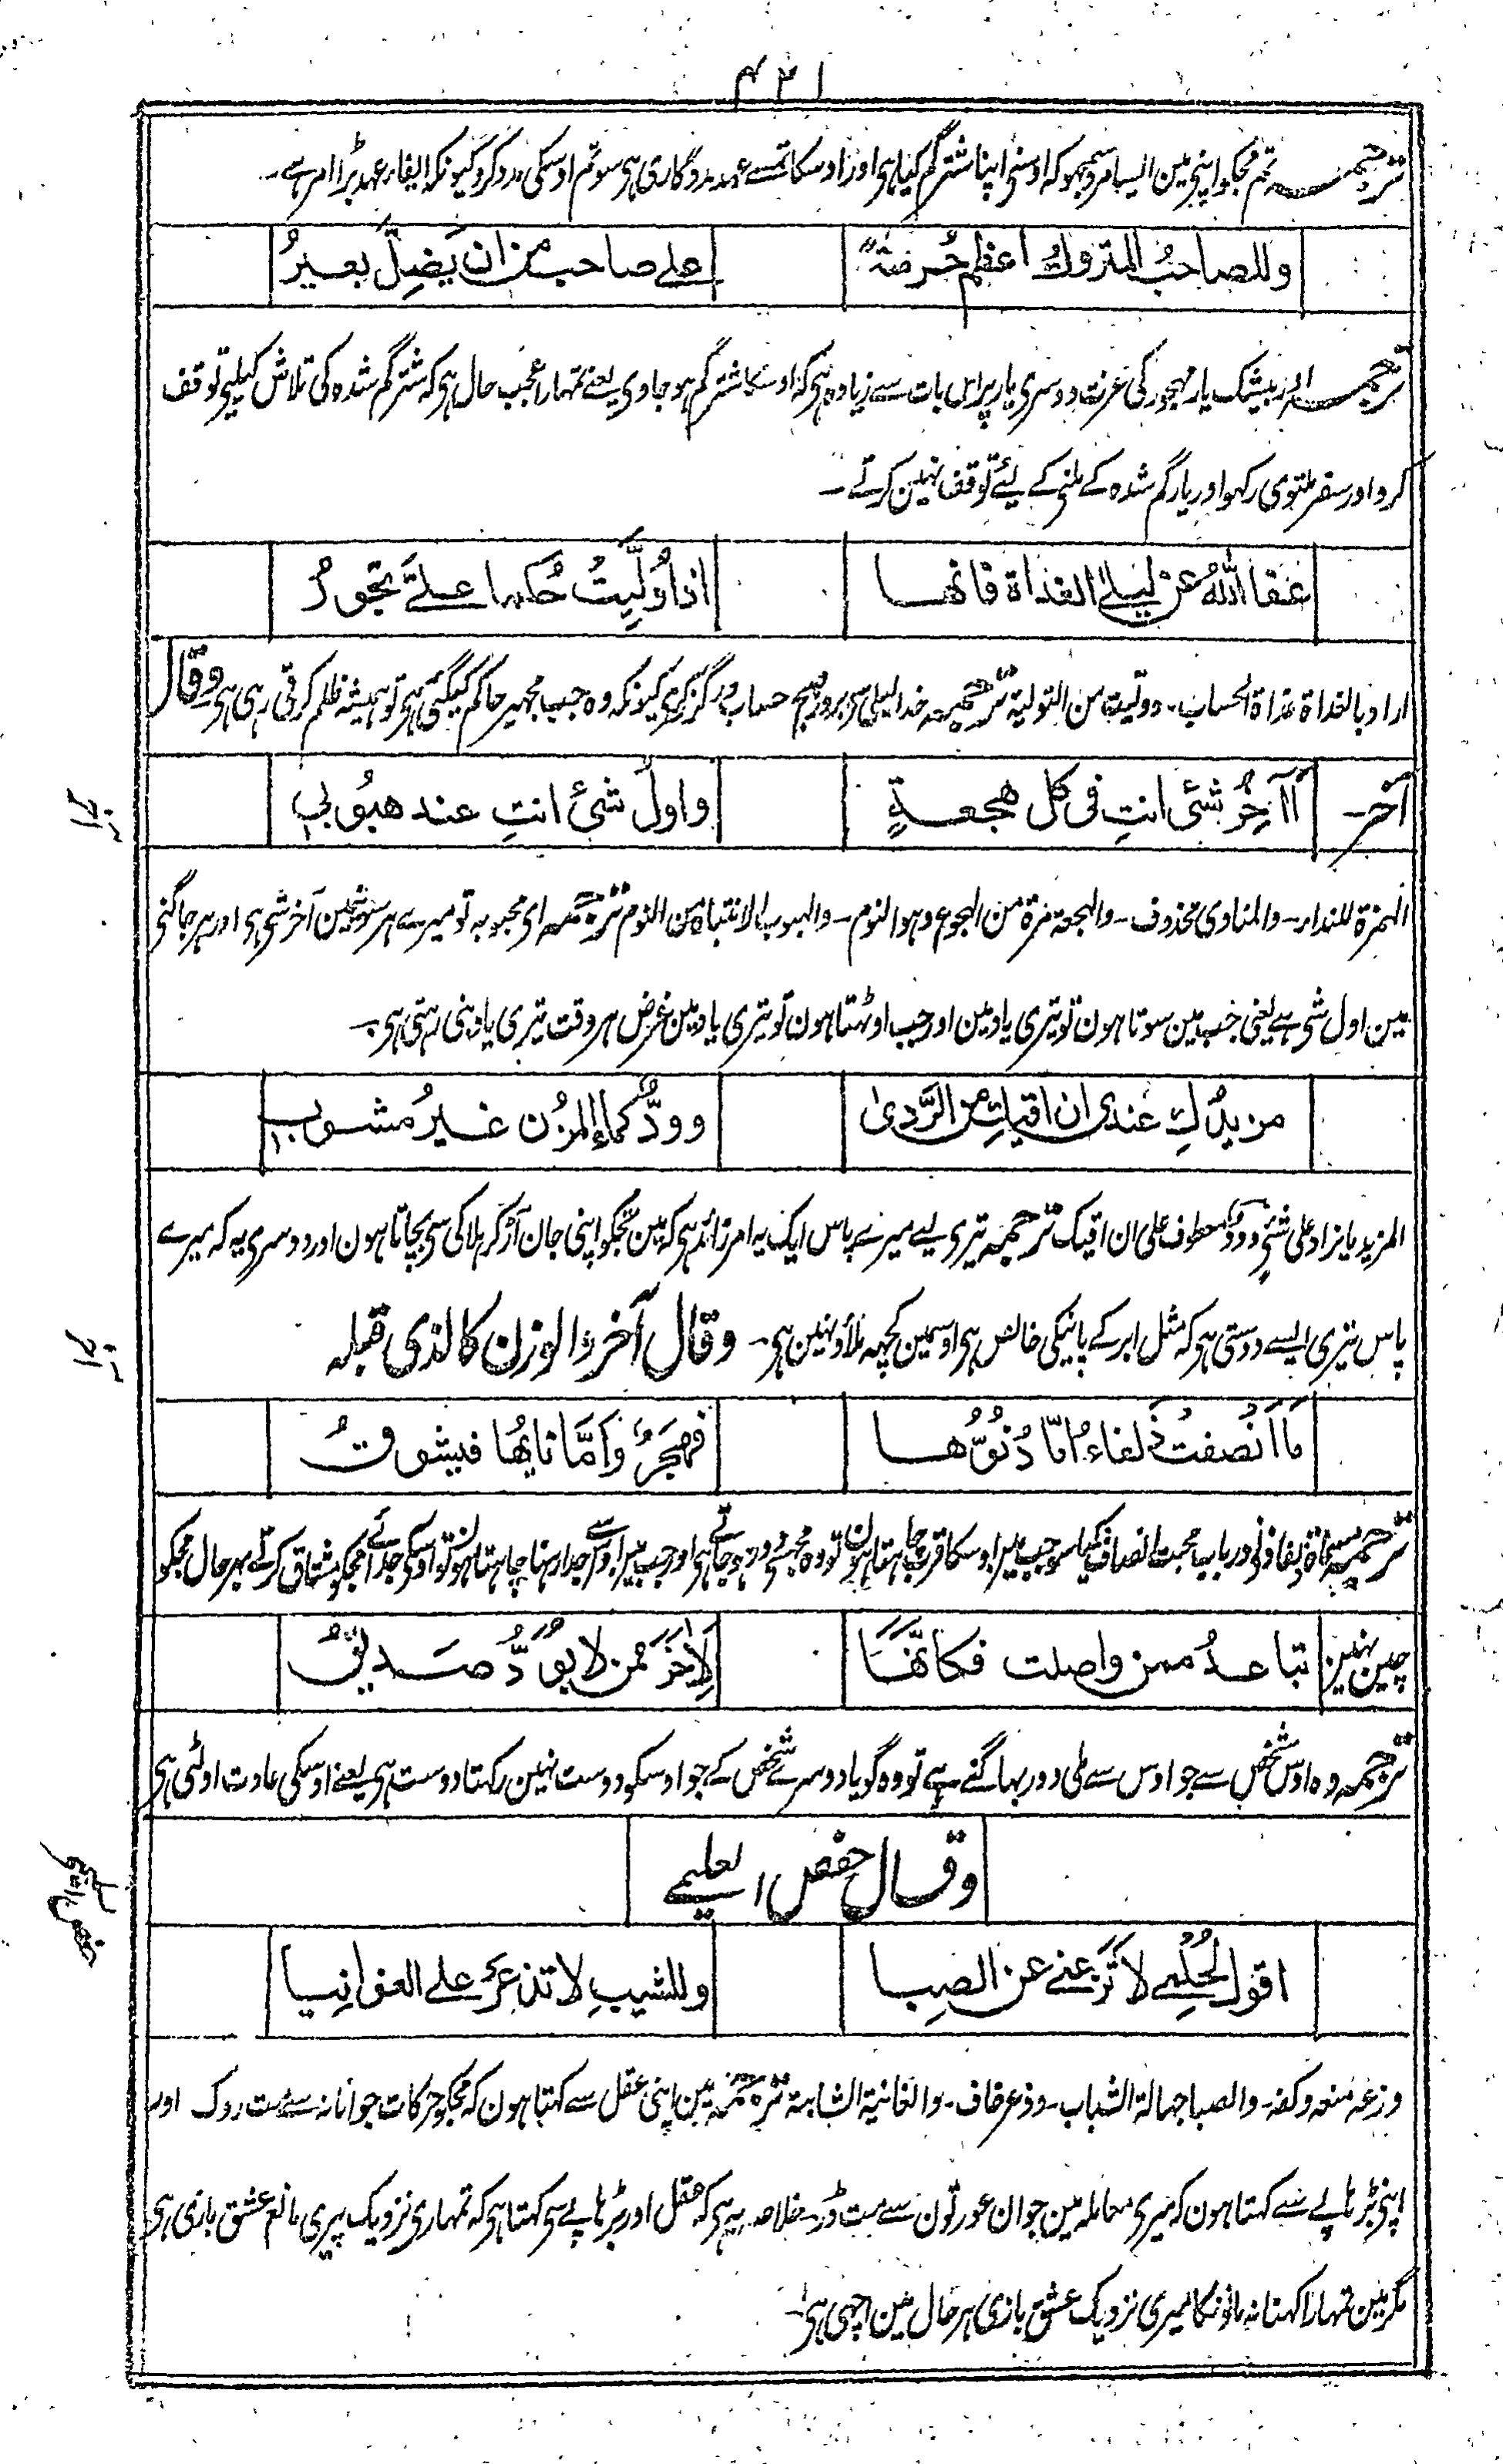 ۴۲۱
ترجمہ تم مجکو اپنی مین ایسا مرد سمجھو کہ اوسنی اپنا شتر گم کیا ہی اور اوسکا تمسے عہد مددگاری ہی سو تم اوسکی مدد کرو کیونکہ ایفاء عہد بڑا امر ہے۔
وللصاحبُ المتروكُ اعظم حُرمَةً علے صاحب من ان يَضِلَّ بعيرُ
ترجمہ اور بیشک یار مہجور کی عزت دوسری یار پر اس بات سے زیادہ ہی کہ اوسکا شتر گم ہو جاوی یعنے تمہارا عجیب حال ہی کہ شتر گم شدہ کی تلاش کیلیی توقف
کرو اور سفر ملتوی رکہو اور یار گم شدہ کے ملنی کے لیئے توقف نہین کرتے۔
عفا اللهُ عن ليلے الغداة فانها اذا وُلِّيَتْ حُكما علےَّ تجورُ
اراد بالغداة غداة الحساب۔ ووليت من التولية ترجمہ خدا لیلی سی بروز حساب درگزر کری کیونکہ وہ جب مجہپر حاکم کیگئی ہی تو ہمیشہ ظلم کرتی رہی ہی وقال
آخر۔ أآخِرُ شئی انتِ فی کل هجعةٍ واولُ شئ انتِ عند هبُوبی
الهمزة للنداء۔ والمنادی محذوف۔ والهجعة مرة من الهجوع وهو النوم۔ والهبوب الانتباه من النوم ترجمہ ای محبوبہ تو میرے ہر سونیمین آخر شی ہی اور ہر جاگنی
مین اول شی ہے یعنی جب مین سوتا ہون تو تیری یاد مین اور جب اوٹہتا ہون تو تیری یاد مین غرض ہر وقت تیری یاد ہی رہتی ہی۔
مزيدُكِ عندی ان اقيكِ من الرَّدیٰ وودٌّ كماءِ المزن غيرُ مشوب
المزيد ما يزاد علی شئ وودٌّ معطوف علی ان اقيك ترجمہ تیری لیے میرے پاس ایک یہ امر زائد ہی کہ مین تجکو اپنی جان آڑ کر ہلاکی سی بچاتا ہون اور دوسری یہ کہ میرے
پاس تیری ایسے دوستی ہی کہ مثل ابر کے پانیکی خالص ہی اوسمین کچہہ ملاؤ نہین ہی۔ وقال آخر والوزن كالذی قبله
ما انصفتْ ذلفاءُ امّا دُنوُّها فهجرٌ وَامَّا نايُها فيشوقُ
ترجمہ مسماۃ ذلفا فی درباب محبت انصاف نکیا سو جب میرا اوسکا قرب چاہتا ہون تو وہ مجہسے دور ہو جاتے ہی اور جب میرا اوس سے جدا رہنا چاہتا ہون تو اوسکی جدائے مجکو مشتاق کرتے بہر حال مجکو
چین نہین تباعدُ ممن واصلت فكانّها لِاٰخَرَ ممن لا يودُّ صديقُ
ترجمہ وہ اوس شخص سے جو اوس سے ملی دور بہاگتے ہے تو وہ گویا دوسرے شخص کے جو اوسکو دوست نہین رکہتا دوست ہی یعنے اوسکی عادت اولٹی ہی
وقال حفص العليمے
اقول لحلمے لا تَزَعنے عن الصِبا وللشيبِ لا تذعر علے الغوانِيا
وزعه منعه وكفه۔ والصبا جهالة الشباب۔ وذعر خاف۔ والغانية الشابة ترجمہ مین اپنی عقل سے کہتا ہون کہ مجکو حرکات جوانانہ سے مت روک اور
اپنی بڑہاپے سے کہتا ہون کہ میری معاملہ مین جوان عورتون سے مت ڈر۔ خلاصہ یہ ہی کہ عقل اور بڑہاپے سی کہتا ہی کہ تمہاری نزدیک پیری مانع عشق بازی ہی
مگر مین تمہارا کہنا نہ مانونگا میری نزدیک عشق بازی ہر حال مین اچہی ہی۔